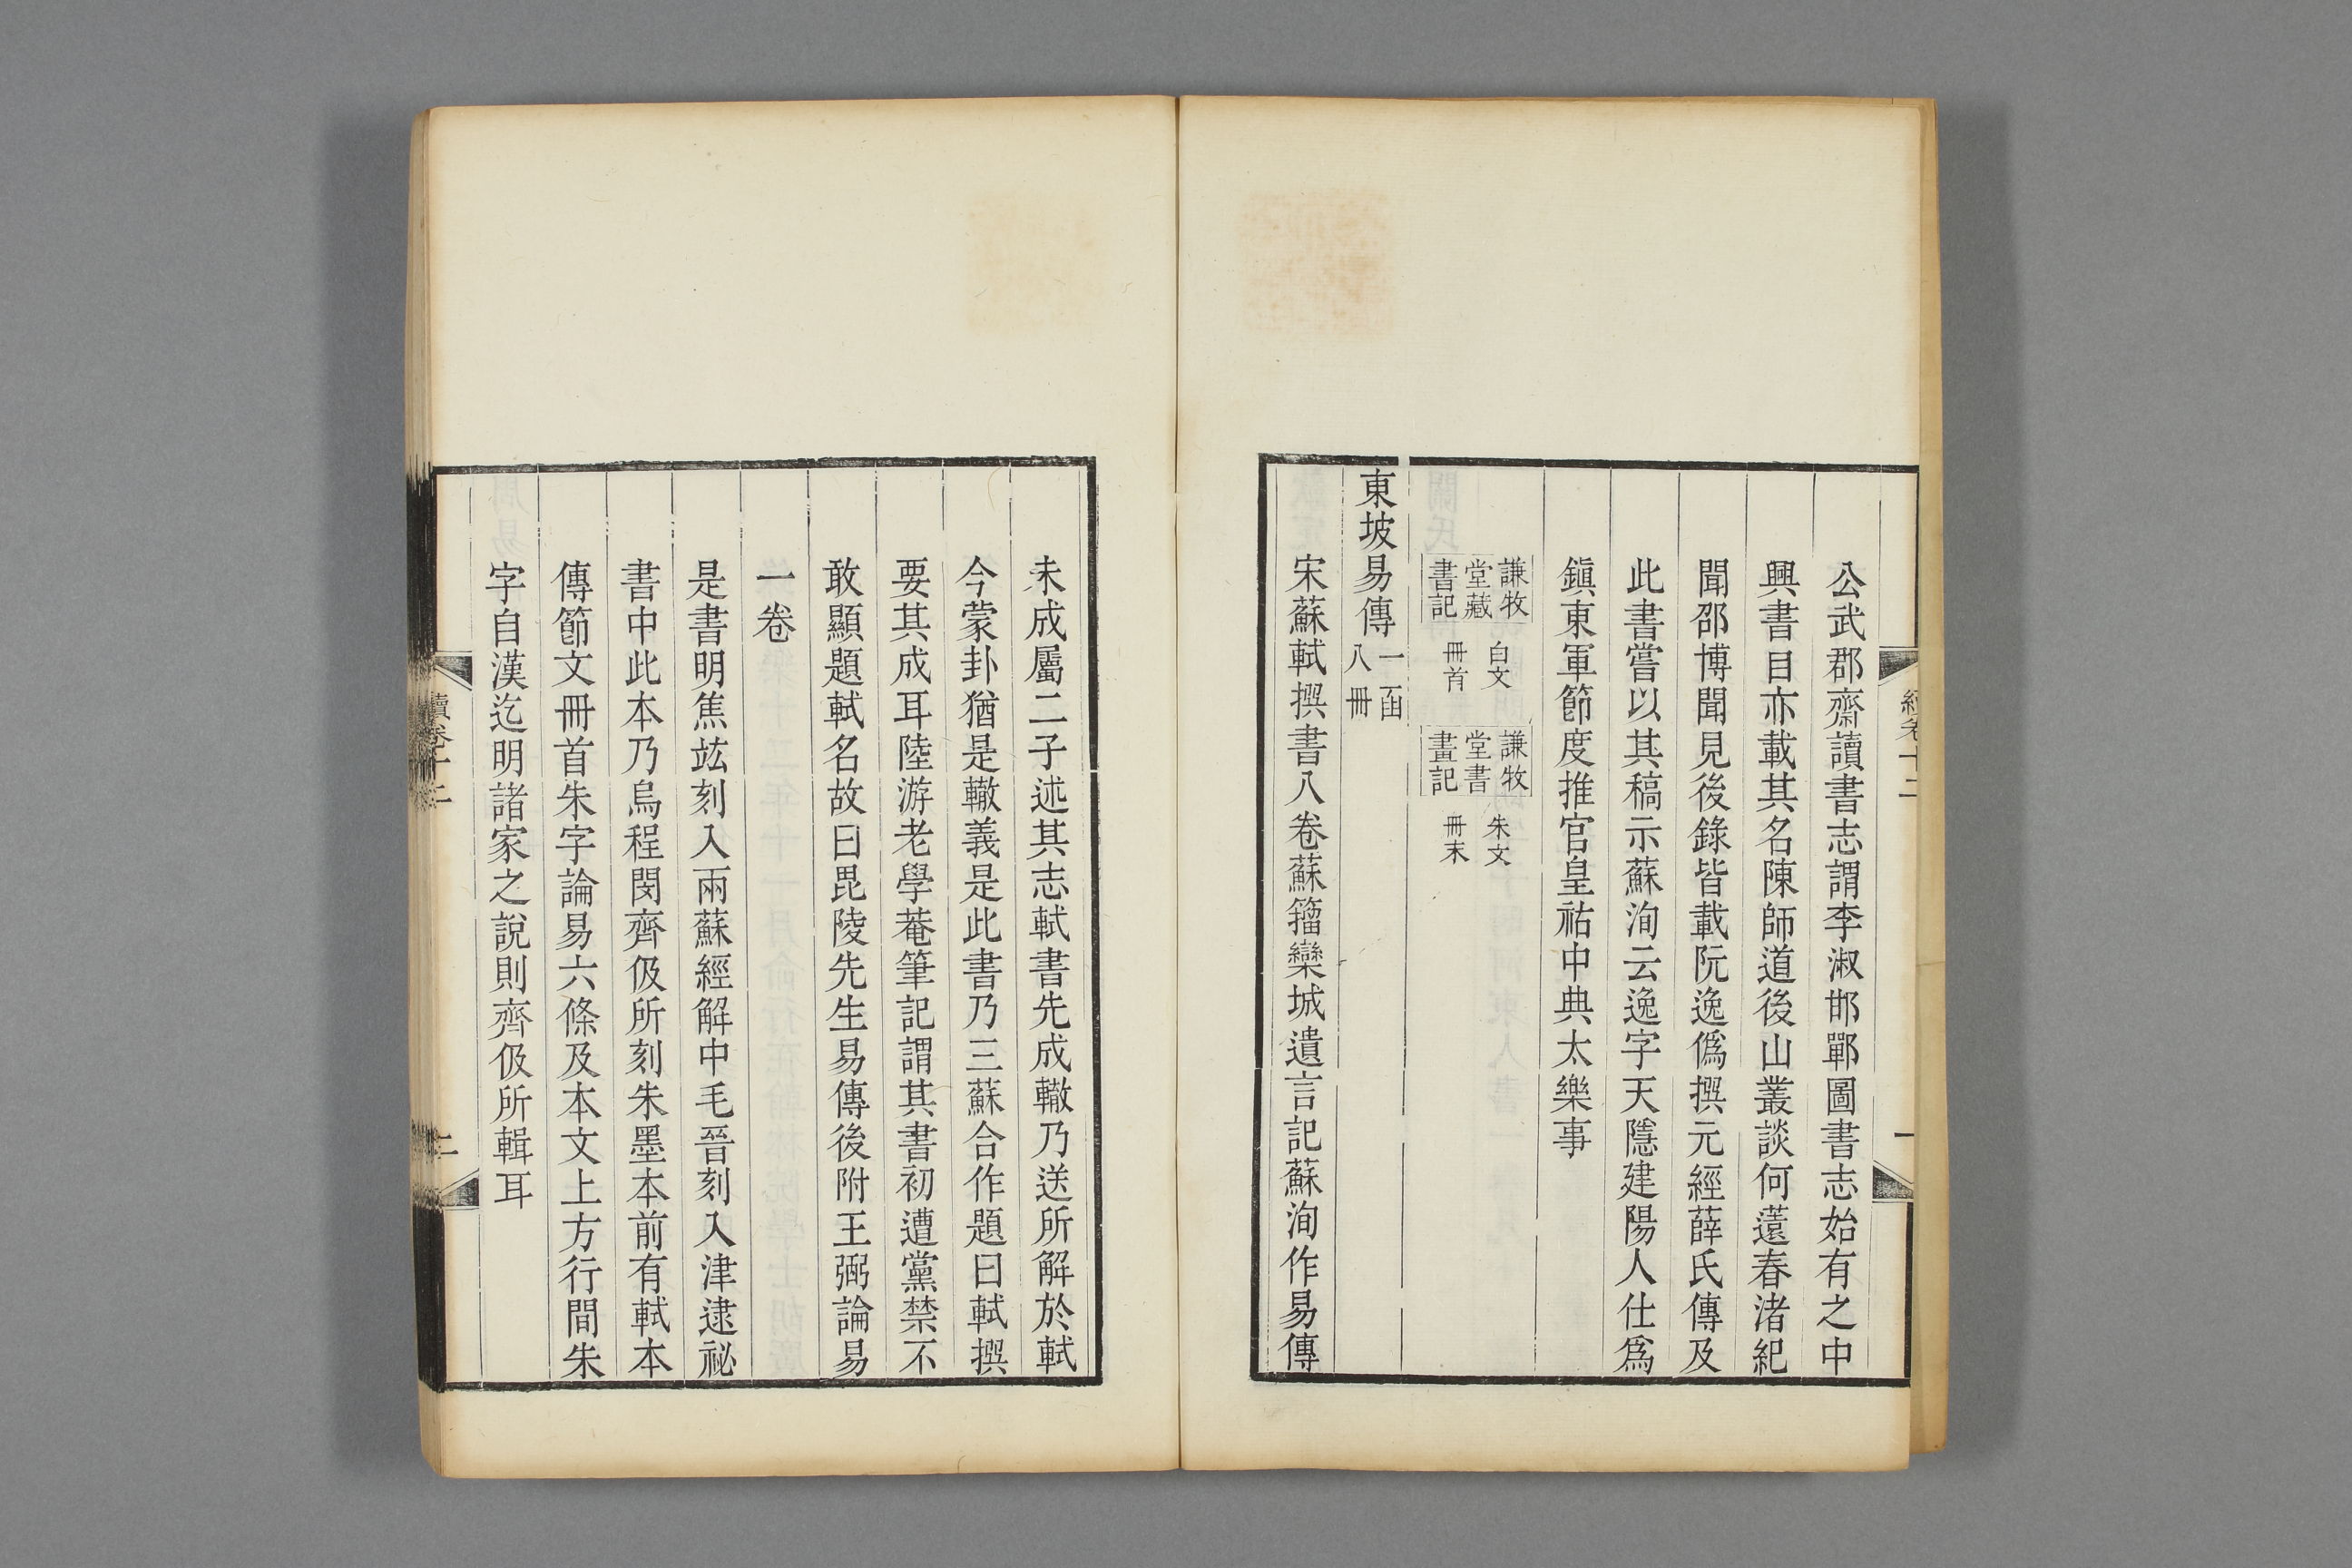 公武郡齋讀書志謂李淑邯鄲圖書志始有之中
興書目亦載其名陳師道後山叢談何薳春渚紀
聞邵博聞見後錄皆載阮逸僞撰元經薛氏傳及
此書嘗以其稿示蘇洵云逸字天隱建陽人仕爲
鎭東軍節度推官皇祐中典太樂事
謙牧
堂藏
書記
白文
冊首
謙牧
堂書
畫記
朱文
冊末
東坡易傳
一函
八冊
宋蘇軾撰書八卷蘇籀欒城遺言記蘇洵作易傳
未成屬二子述其志軾書先成轍乃送所解於軾
今蒙卦猶是轍義是此書乃三蘇合作題曰軾撰
要其成耳陸游老學菴筆記謂其書初遭黨禁不
敢顯題軾名故曰毘陵先生易傳後附王弼論易
一卷
是書明焦竑刻入兩蘇經解中毛晉刻入津逮祕
書中此本乃烏程閔齊伋所刻朱墨本前有軾本
傳節文冊首朱字論易六條及本文上方行間朱
字自漢迄明諸家之說則齊伋所輯耳
續卷十二
二